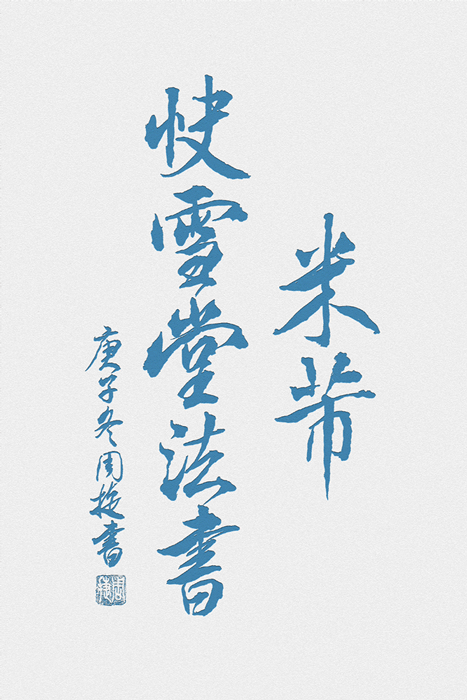 米芾
快雪堂法書
庚子冬周捷書